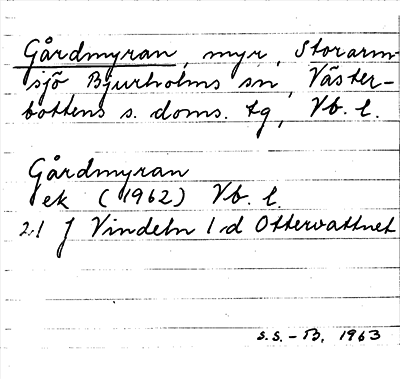 Gårdmyran, myr, Storarm-
sjö, Bjurholms sn, Väster-
bottens s. doms. tg, Vb. l.
Gårdmyran
ek (1962) Vb. l.
21 J Vindeln 1 d Ottervattnet
S.S. - B. 1963